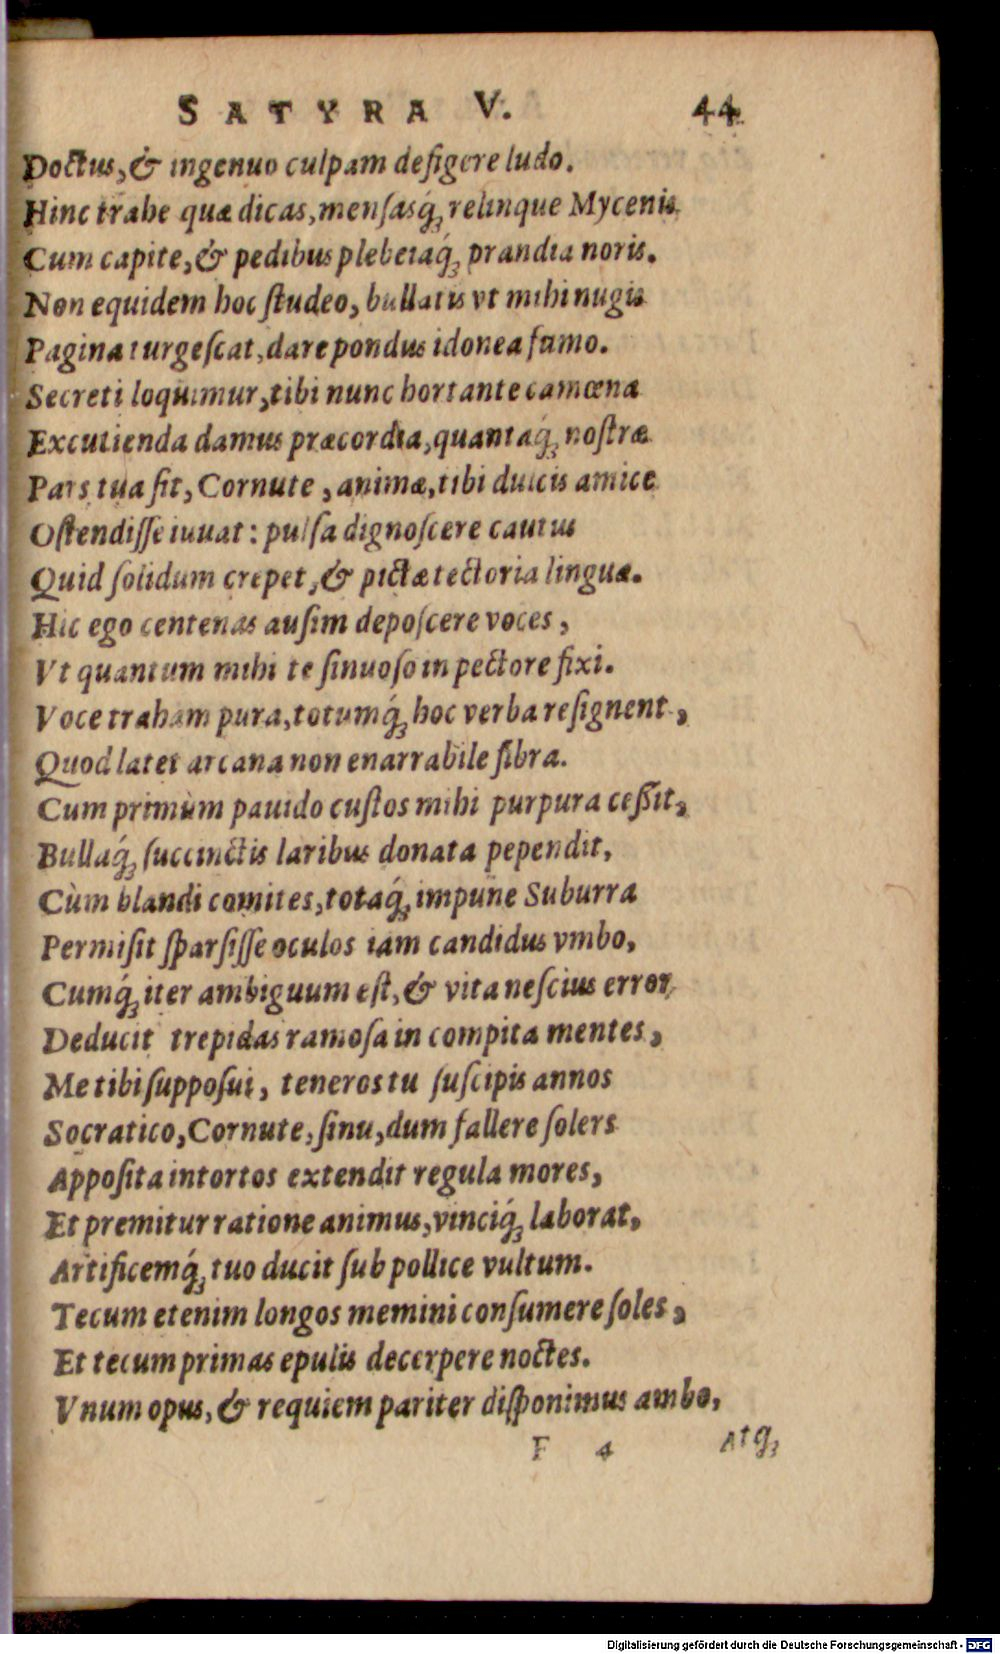 SATYRA V. 44
Doctus, & ingenuo culpam defigere ludo.
Hinc trahe quæ dicas, menſasq́ꝫ relinque Mycenis
Cum capite, & pedibus plebeiaq́ꝫ prandia noris.
Non equidem hoc ſtudeo, bullatis vt mihi nugis
Pagina turgeſcat, dare pondus idonea fumo.
Secreti loquimur, tibi nunc hortante camœna
Excutienda damus præcordia, quantaq́ꝫ noſtræ
Pars tua ſit, Cornute, animæ, tibi dulcis amice
Oſtendiſſe iuuat: pulſa dignoſcere cautus
Quid ſolidum crepet, & pictæ tectoria linguæ.
Hic ego centenas auſim depoſcere voces,
Vt quantum mihi te ſinuoſo in pectore fixi.
Voce traham pura, totumq́ꝫ hoc verba reſignent,
Quod latet arcana non enarrabile fibra.
Cum primùm pauido cuſtos mihi purpura ceßit,
Bullaq́ꝫ ſuccinctis laribus donata pependit,
Cùm blandi comites, totaq́ꝫ impune Suburra
Permiſit ſparſiſſe oculos iam candidus vmbo,
Cumq́ꝫ iter ambiguum eſt, & vita neſcius error
Deducit trepidas ramoſa in compita mentes,
Me tibi ſuppoſui, teneros tu ſuſcipis annos
Socratico, Cornute, ſinu, dum fallere ſolers
Appoſita intortos extendit regula mores,
Et premitur ratione animus, vinciq́ꝫ laborat,
Artificemq́ꝫ tuo ducit ſub pollice vultum.
Tecum etenim longos memini conſumere ſoles,
Et tecum primas epulis decerpere noctes.
Vnum opus, & requiem pariter diſponimus ambo,
F 4 Atqꝫ
Digitalisierung gefördert durch die Deutsche Forschungsgemeinschaft - DFG